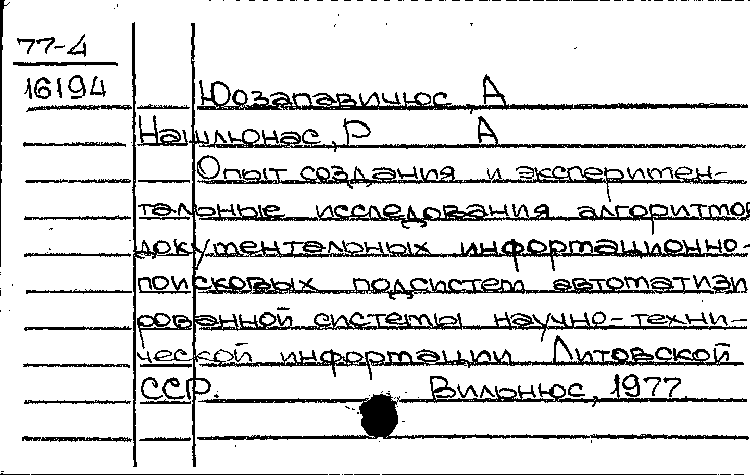 77-4
16194
Юозапавичюс, А
Нашлюнас, Р А
Опыт создания и эксперимен-
тальные исследования алгоритмов
документальных информационно-
поисковых подсистем автоматизи
рованной системы научно-техни-
ческой информации Литовской
ССР. Вильнюс, 1977